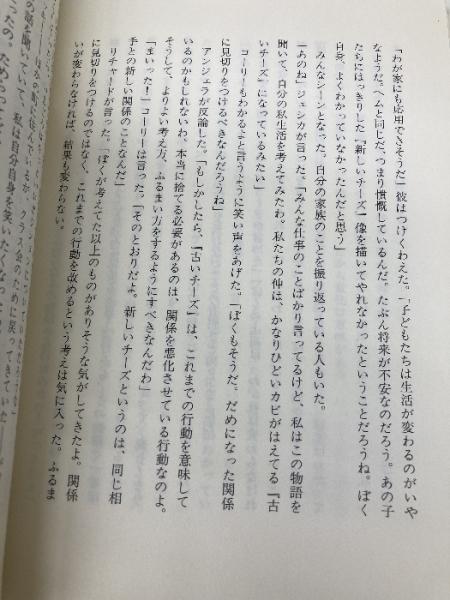 「わが家にも応用できそうだ」彼はつけくわえた。「子どもたちは生活が変わるのがいや
なようだ。ヘムと同じだ、つまり憤慨しているんだ。たぶん将来が不安なのだろう。あの子
たちにはっきりした『新しいチーズ』像を描いてやれなかったということだろうね。ぼく
自身、よくわかっていなかったんだと思う」
みんなシーンとなった。自分の家族のことを振り返っている人もいた。
「あのね」ジェシカが言った。「みんな仕事のことばかり言ってるけど、私はこの物語を
聞いて、自分の私生活を考えてみたわ。私たちの仲は、かなりひどいカビがはえてる『古
いチーズ』になっているみたい」
コーリーもわかるよと言うように笑い声をあげた。「ぼくもそうだ。だめになった関係
に見切りをつけるべきなんだろうね」
アンジェラが反論した。「もしかしたら、『古いチーズ』は、これまでの行動を意味して
いるのかもしれないわ、本当に捨てる必要があるのは、関係を悪化させている行動なのよ。
そうして、よりよい考え方、ふるまい方をするようにすべきなんだわ」
「まいった！」コーリーは言った。「そのとおりだよ。新しいチーズというのは、同じ相
手との新しい関係のことなんだ」
リチャードが言った。「ぼくが考えてた以上のものがありそうな気がしてきたよ。関係
に見切りをつけるのではなく、これまでの行動を改めるという考えは気に入った。ふるま
いが変わらなければ、結果も変わらない。
クラス会のために戻ってきていた
の話を聞いていて、私は自分自身を笑いたくなっ